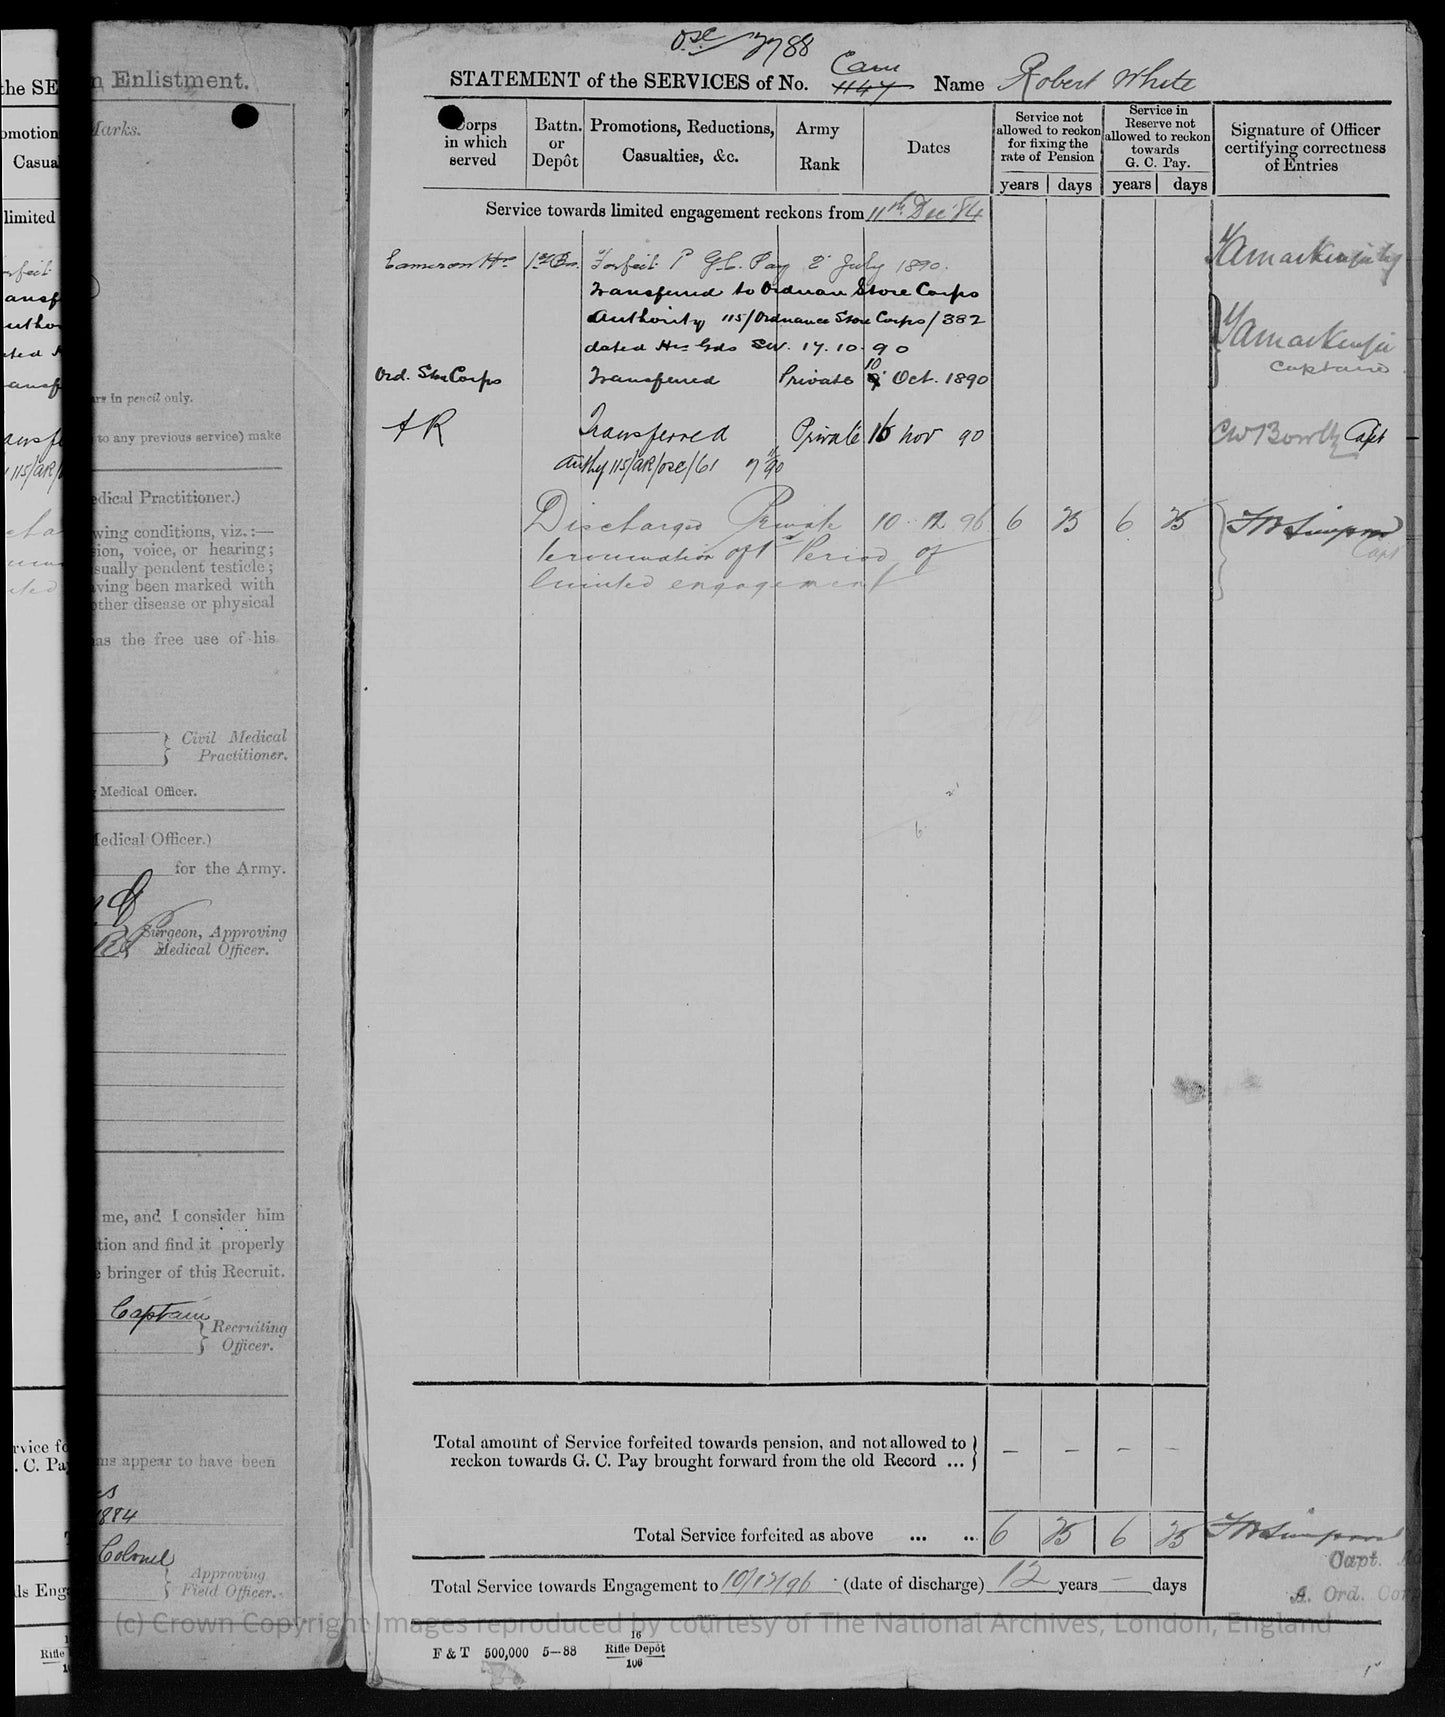 the SE
omotion
Casua
limited
rvice fo
. C. Pa
ls Eng
Rifle
n Enlistment.
Marks.
ars in pencil only.
to any previous service) make
edical Practitioner.)
wing conditions, viz.:—
sion, voice, or hearing;
sually pendent testicle;
aving been marked with
other disease or physical
has the free use of his
Civil Medical
Practitioner.
Medical Officer.
Medical Officer.)
for the Army.
Surgeon, Approving
Medical Officer.
me, and I consider him
tion and find it properly
e bringer of this Recruit.
Captain
Recruiting
Officer.
ms appear to have been
1884
Colonel
Approving
Field Officer.
OSC 2788
Cam
STATEMENT of the SERVICES of No. 1147 Name Robert White
Corps in which served
Battn. or Depôt
Promotions, Reductions, Casualties, &c.
Army Rank
Dates
Service not allowed to reckon for fixing the rate of Pension
Service in Reserve not allowed to reckon towards G. C. Pay.
Signature of Officer certifying correctness of Entries
years days years days
Service towards limited engagement reckons from 11th Dec '84
Cameron Hrs 1st Bn. Forfeit 1d G.C. Pay 2 July 1890.
Transferred to Ordnan Store Corps
Authority 115/Ordnance Store Corps/382
dated Hse Gds SW. 17.10.90
Captain
Ord. Store Corps Transferred Private 10 Oct. 1890
AR Transferred Private 16 Nov 90 Capt
Authy 115/AR/OSC/61
Discharged Private 10 12 96 6 25 6 25
termination of 1st Period of
limited engagement
Capt
Total amount of Service forfeited towards pension, and not allowed to
reckon towards G. C. Pay brought forward from the old Record ... – – – –
Total Service forfeited as above ... .. 6 25 6 25
Capt.
Total Service towards Engagement to 10/12/96 (date of discharge) 12 years – days
A. Ord. Cor
(c) Crown Copyright Images reproduced by courtesy of The National Archives, London, England
F & T 500,000 5—88
16
Rifle Depôt
106